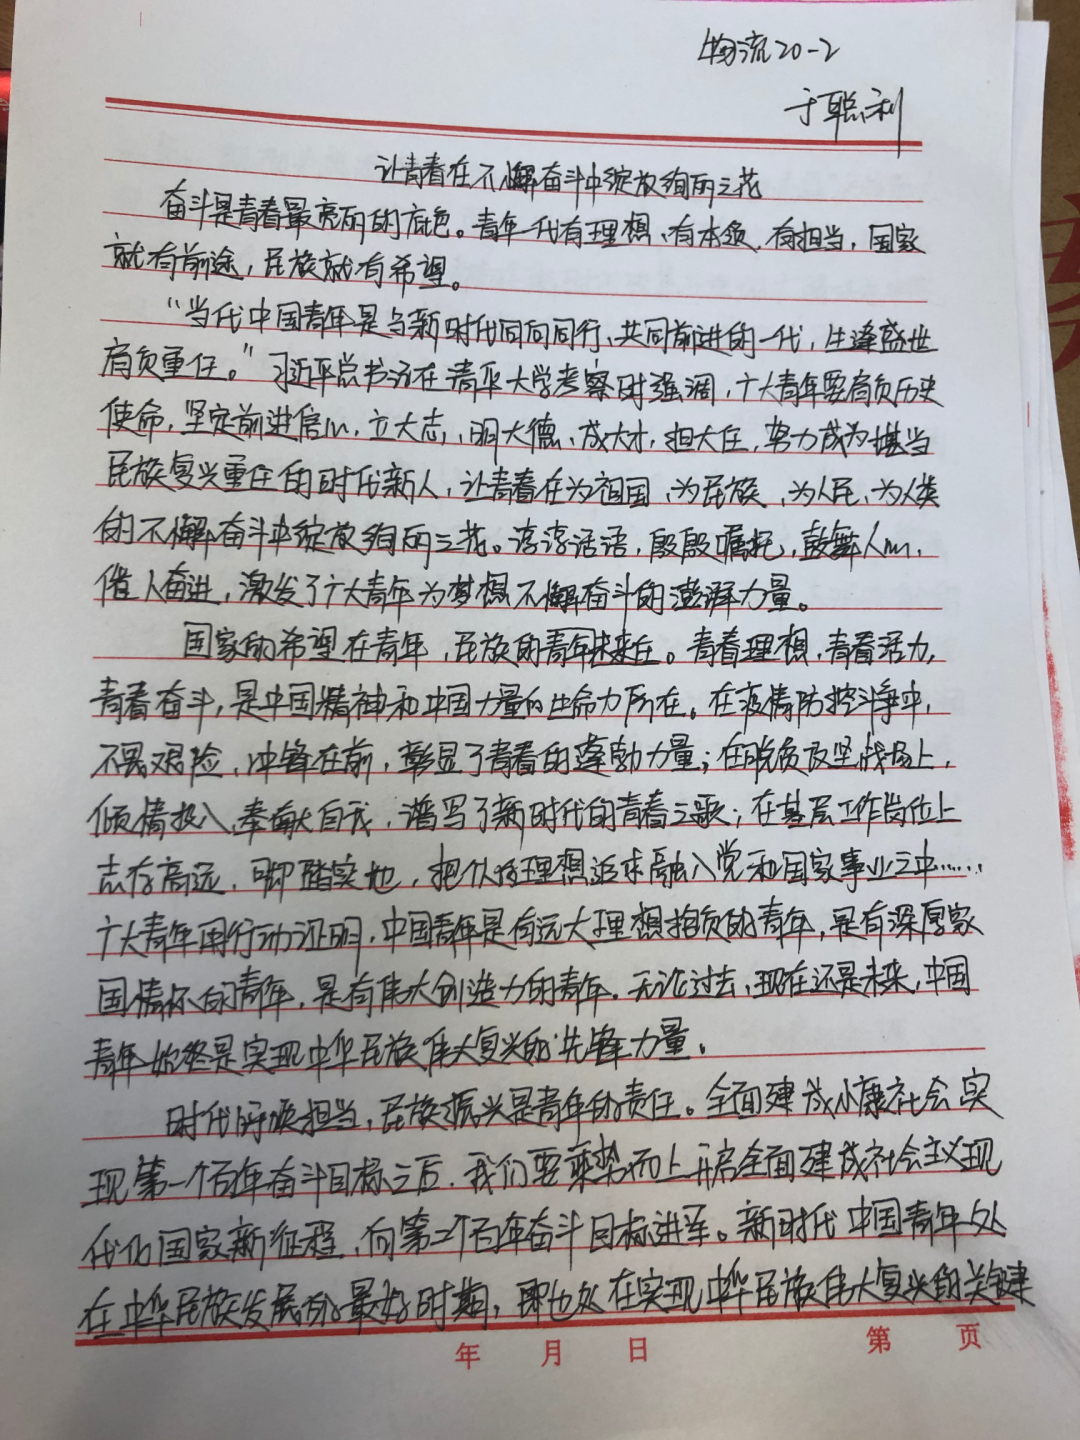 物流20-2
于聪利
让青春在不懈奋斗中绽放绚丽之花
奋斗是青春最亮丽的底色。青年一代有理想、有本领、有担当，国家
就有前途，民族就有希望。
“当代中国青年是与新时代同向同行、共同前进的一代，生逢盛世
肩负重任。”习近平总书记在清华大学考察时强调，广大青年要肩负历史
使命，坚定前进信心，立大志、明大德、成大才、担大任，努力成为堪当
民族复兴重任的时代新人，让青春在为祖国、为民族、为人民、为人类
的不懈奋斗中绽放绚丽之花。谆谆话语，殷殷嘱托，鼓舞人心，
催人奋进，激发了广大青年为梦想不懈奋斗的澎湃力量。
国家的希望在青年，民族的青年未来在。青春理想，青春活力，
青春奋斗，是中国精神和中国力量的生命力所在。在疫情防控斗争中，
不畏艰险、冲锋在前，彰显了青春的蓬勃力量；在脱贫攻坚战场上，
倾情投入、奉献自我，谱写了新时代的青春之歌；在基层工作岗位上
志存高远、脚踏实地，把个人理想追求融入党和国家事业之中……
广大青年用行动证明，中国青年是有远大理想抱负的青年，是有深厚家
国情怀的青年，是有伟大创造力的青年。无论过去、现在还是未来，中国
青年始终是实现中华民族伟大复兴的先锋力量。
时代呼唤担当，民族振兴是青年的责任。全面建成小康社会实
现第一个百年奋斗目标之后，我们要乘势而上开启全面建成社会主义现
代化国家新征程、向第二个百年奋斗目标进军。新时代中国青年处
在中华民族发展的最好时期，即也处在实现中华民族伟大复兴的关键
年 月 日 第 页